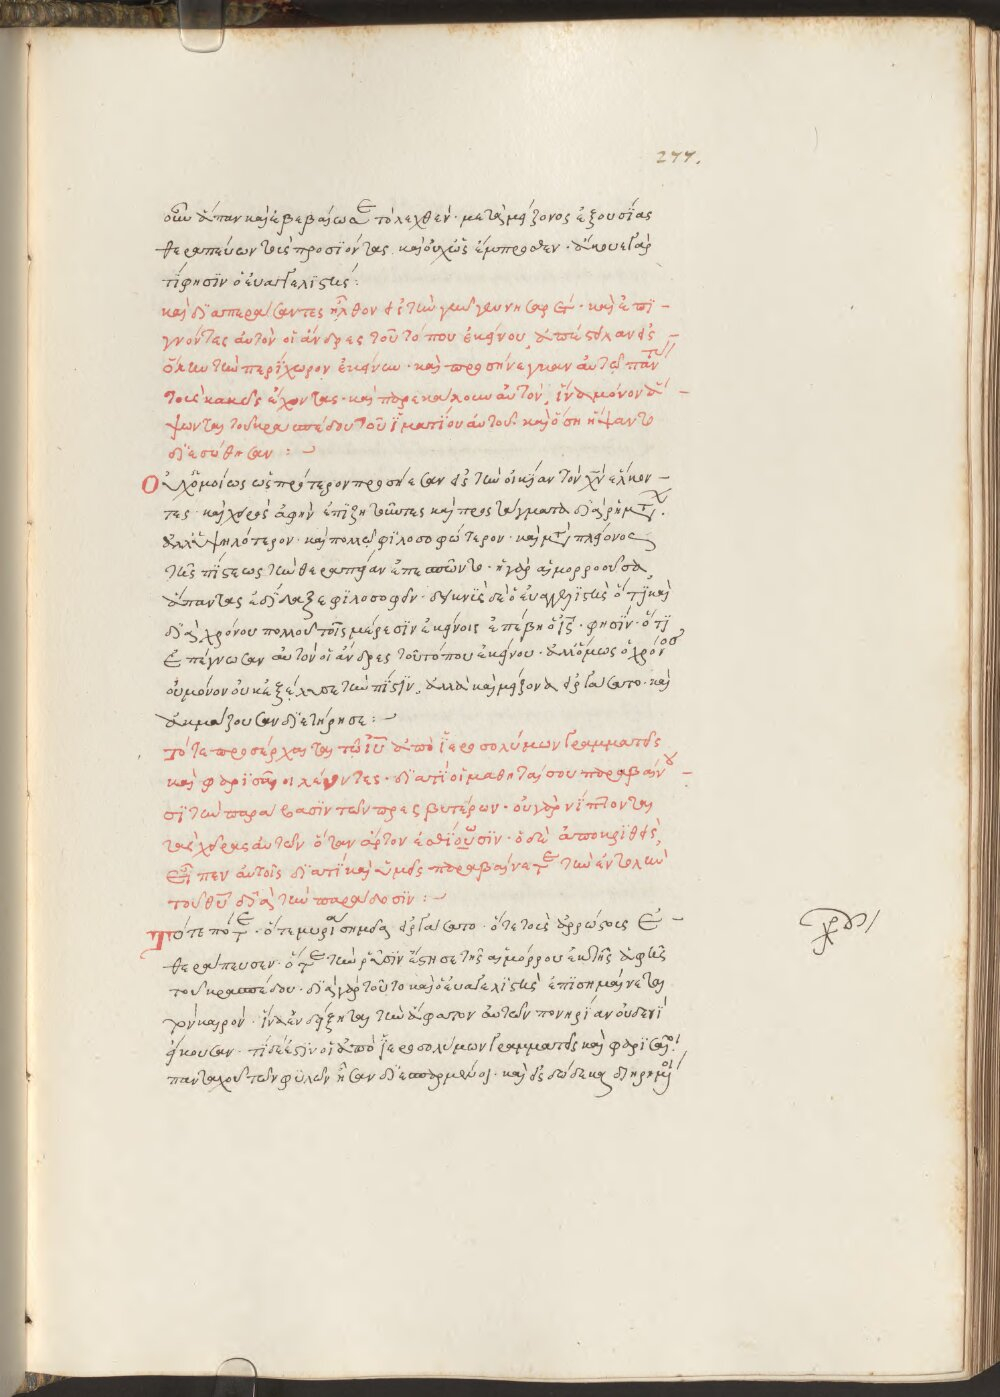 277.
οὖν ἅπαν καὶ ἐβεβαίωσε τὸ λεχθέν· μετὰ μείζονος ἐξουσίας
θεραπεύων τοὺς προσϊόντας. καὶ οὐχ ὡς ἔμπροσθεν. ἄκουε γὰρ
τί φησϊν ὁ εὐαγγελϊστὴς:
καὶ δϊαπεράσαντες ἦλθον εἰς τὴν γῆν γεννησαρέτ· καὶ ἐπϊ
γνόντες αὐτὸν οἱ ἄνδρες τοῦ τόπου ἐκείνου, ἀπέστειλαν εἰς
ὅλην τὴν περίχωρον ἐκείνην· καὶ προσήνεγκαν αὐτῷ πάν
τας
τοὺς κακῶς ἔχοντας· καὶ παρεκάλουν αὐτὸν, ἵνα μόνον ἅ
ψωνται τοῦ κρασπέδου τοῦ ἱματίου αὐτοῦ· καὶ ὅσοι ἥψαντο
δϊεσώθησαν:
Οὐχ ὁμοίως ὡς πρότερον προσῄεσαν εἰς τὴν οἰκίαν τὸν χν ἕλκον
τες· καὶ χειρὸς ἁφὴν ἐπϊζητοῦντες καὶ προστάγματα δϊὰ ῥημάτων.
ἀλλ' ὑψηλότερον· καὶ πολλῷ φϊλοσοφώτερον· καὶ μετὰ πλείονος
τῆς πίστεως τὴν θεραπείαν ἐπεσπῶντο· ἡ γὰρ αἱμορροοῦσα
ἅπαντας ἐδίδαξε φϊλοσοφεῖν· δεικνὺς δὲ ὁ εὐαγγελϊστὴς ὅτϊ καὶ
δϊὰ χρόνου πολλοῦ τοῖς μέρεσϊν ἐκείνοις ἐπέβη ὁ ις· φησϊν· ὅτϊ
ἐπέγνωσαν αὐτὸν οἱ ἄνδρες τοῦ τόπου ἐκείνου· ἀλλ' ὅμως ὁ χρόνος
οὐ μόνον οὐκ ἐξέλυσε τὴν πίστϊν, ἀλλὰ καὶ μείζονα εἰργάσατο· καὶ
ἀκμάζουσαν δϊετήρησε:
Τότε προσέρχονται τῷ ιυ ἀπὸ ἱεροσολύμων γραμματεῖς
καὶ φαρισαῖοι λέγοντες· δϊατί οἱ μαθηταί σου παραβαίνου
σϊ τὴν παράδοσϊν τῶν πρεσβυτέρων· οὐ γὰρ νίπτονται
τὰς χεῖρας αὐτῶν ὅταν ἄρτον ἐσθίουσϊν· ὁ δὲ ἀποκριθεὶς
εἶπεν αὐτοῖς δϊατί καὶ ὑμεῖς παραβαίνετε τὴν ἐντολὴν
τοῦ θυ δϊὰ τὴν παράδοσϊν:
Τότε πότε· ὅτε μυρία σημεῖα εἰργάσατο· ὅτε τοὺς ἀρρώστους ἐ
θεράπευσεν· ὅτε τὴν ῥύσϊν ἔστησε τῆς αἱμόρρου ἐκ τῆς ἁφῆς
τοῦ κρασπέδου· δϊὰ γὰρ τοῦτο καὶ ὁ εὐαγγελϊστὴς ἐπϊσημαίνεται
τὸν καιρὸν· ἵνα ἐνδείξηται τὴν ἄφατον αὐτῶν πονηρίαν οὐδενὶ
εἴκουσαν· τί δέ ἐστϊν οἱ ἀπὸ ἱεροσολύμων γραμματεῖς καὶ φαρϊσαῖοι;
πανταχοῦ τῶν φυλῶν ἦσαν δϊεσπαρμένοι· καὶ εἰς δώδεκα διῃρημένοι